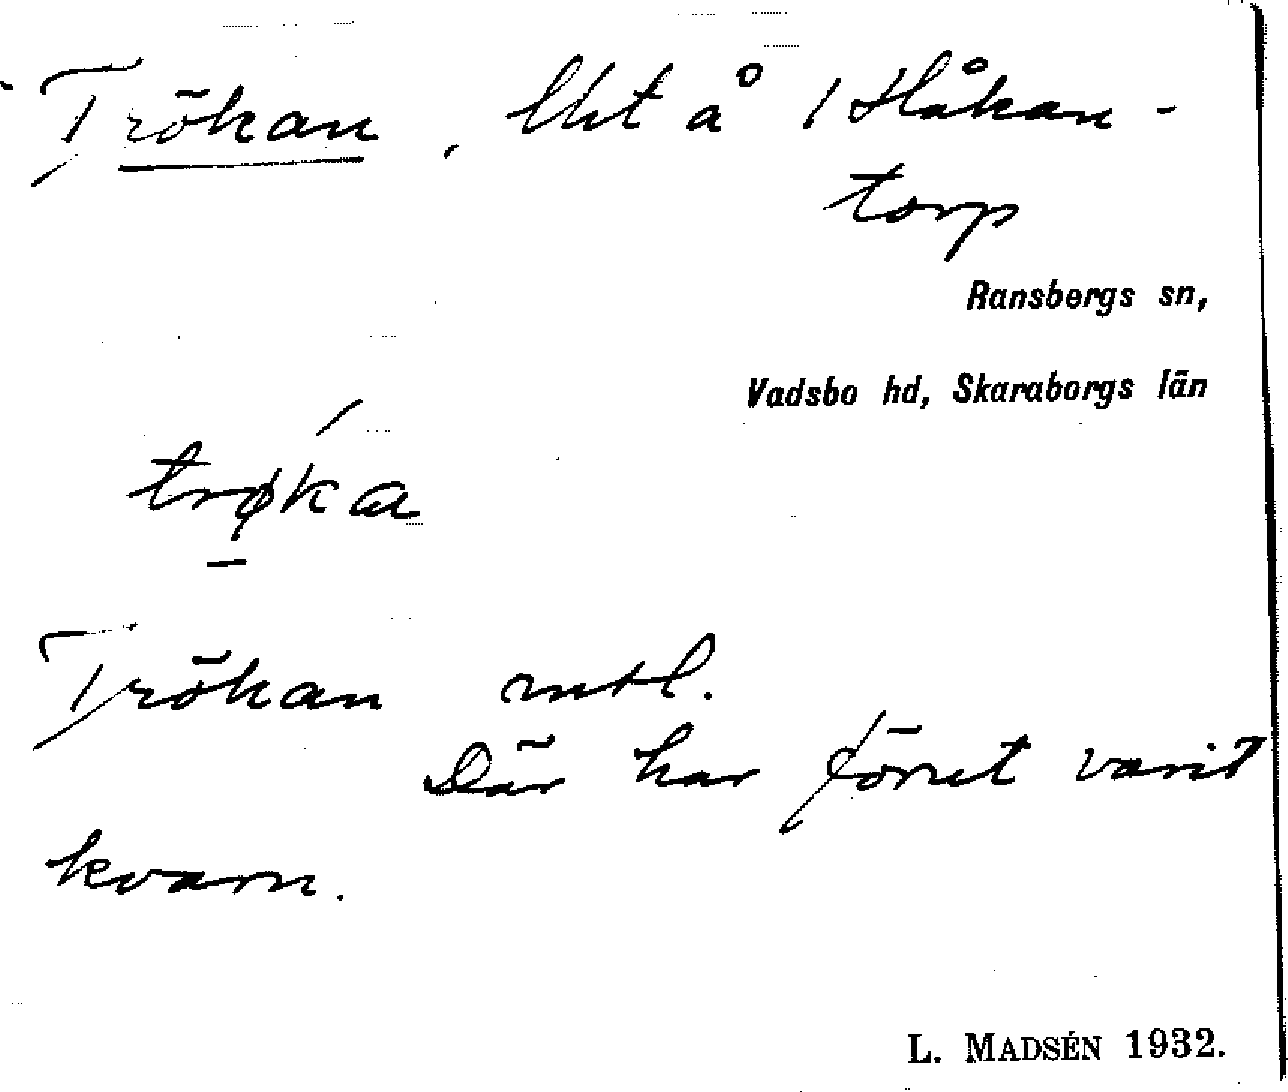 Trökan, lht å 1 Håkan-
torp
Ransbergs sn,
Vadsbo hd, Skaraborgs län
trøka
Trökan mtl.
Där har förut varit
kvarn.
L. MADSÉN 1932.